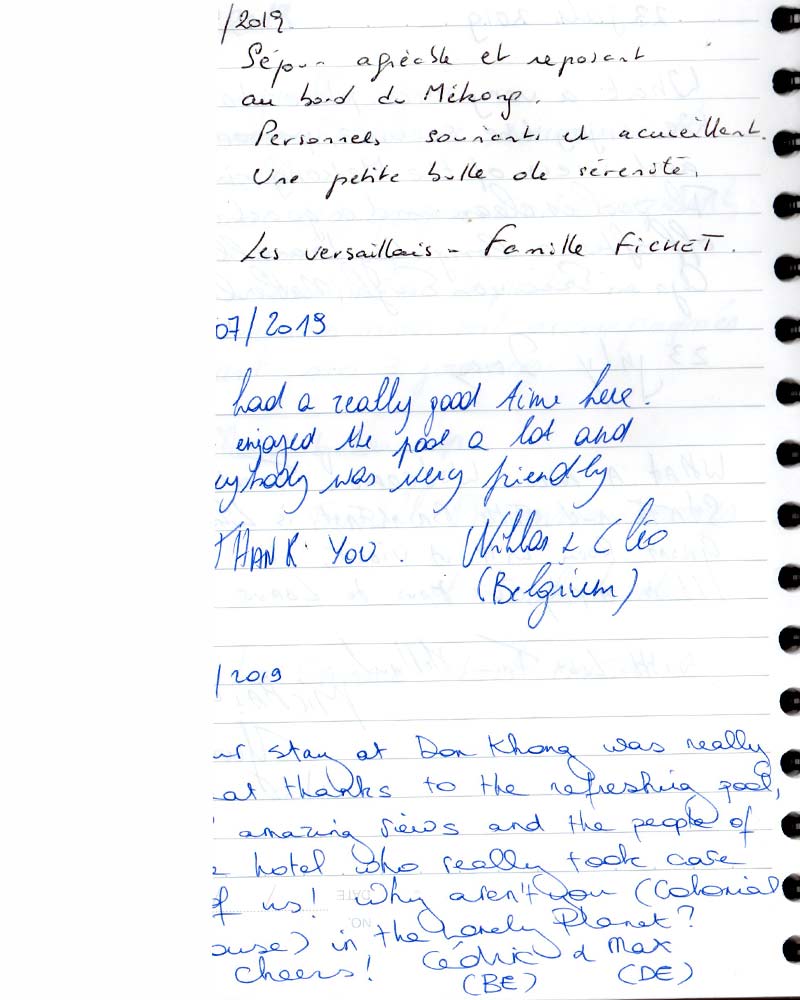 /2019
Séjour agréable et reposant
au bord du Mékong.
Personnels souriants et acueillant.
Une petite bulle de sérénité.
Les versaillais - Famille FICHET.
07/2019
had a really good time here.
enjoyed the pool a lot and
ybody was very friendly
THANK YOU. & Cléo
(Belgium)
/2019
ur stay at Don Khong was really
at thanks to the refreshing pool,
amazing views and the people of
hotel who really took care
f us! Why aren't you (Colonial
ouse) in the Lonely Planet?
cheers! Cédric & Max
(BE) (DE)